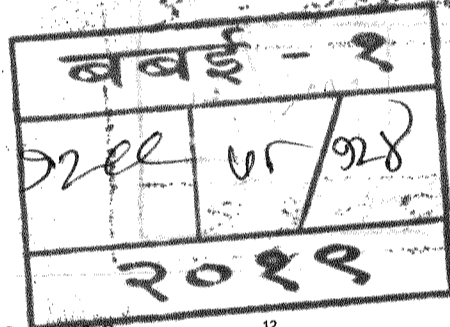 बबई - १
१२९९ /१२४
२०१९
12